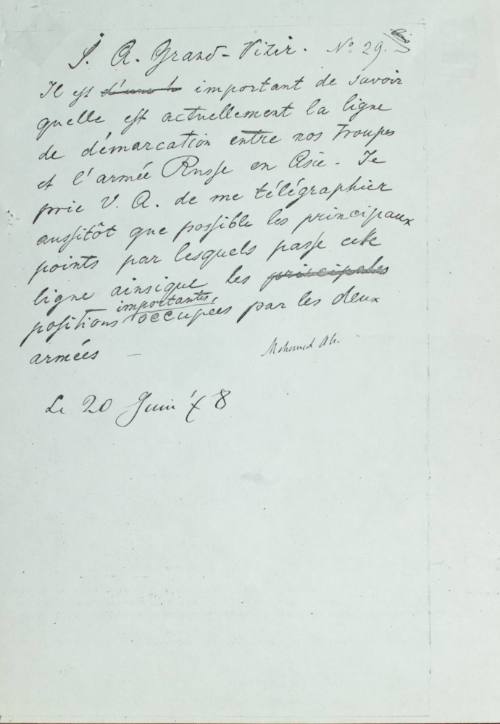 S. A. Grand-Vizir. No 29.
Il est d'une i important de savoir
quelle est actuellement la ligne
de démarcation entre nos troupes
et l'armée Russe en Asie. Je
prie V. A. de me télégraphier
aussitôt que possible les principaux
points par lesquels passe cette
ligne ainsique les principales
importantes
positions occupées par les deux
armées —
Mohamed Ali.
Le 20 Juin 78